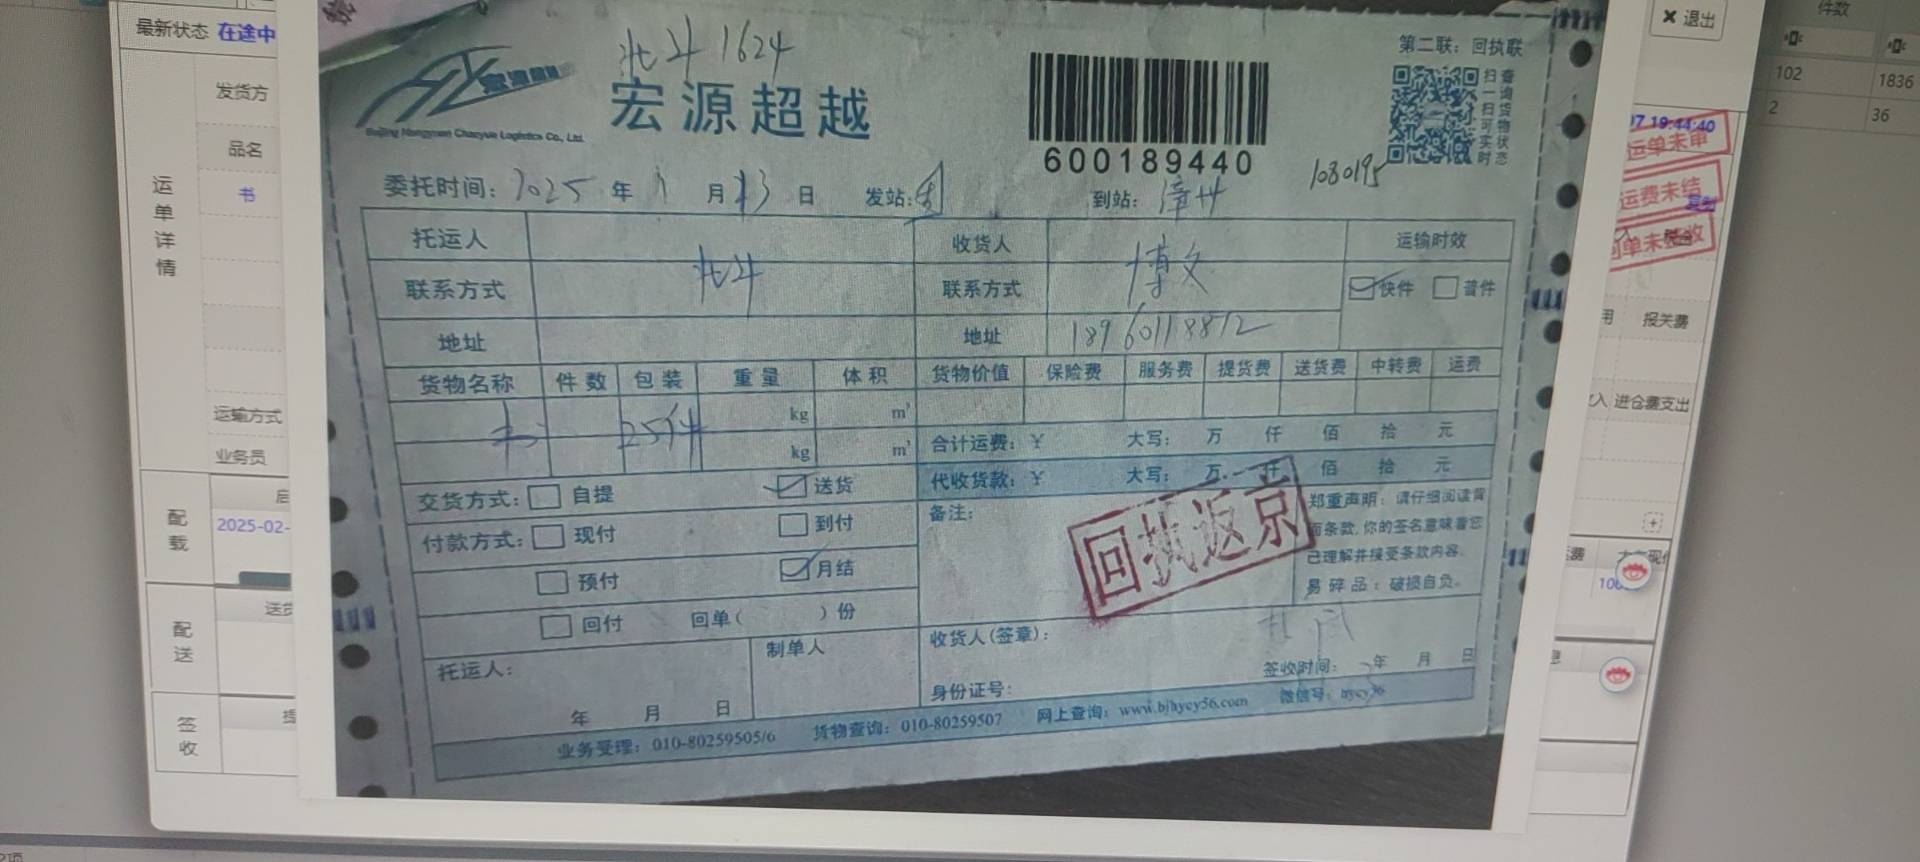 件数
最新状态 在途中
✖ 退出
102 1836
2 36
发货方
品名
书
运单详情
运输方式
业务员
配载
2025-02-
配送
送货
签收
7 19:44:40
运单未审
运费未结
复制
报关费
进仓费支出
北斗1624
第二联：回执联
宏源超越
Beijing Hongyuan Chaoyue Logistics Co., Ltd.
扫一扫可实时
查询货物状态
600189440
1080195
委托时间：2025 年 1 月 13 日 发站： 到站：漳州
托运人 收货人 运输时效
北斗 博文
联系方式 联系方式 快件 普件
地址 地址 18960118812
货物名称 件数 包装 重量 体积 货物价值 保险费 服务费 提货费 送货费 中转费 运费
书 25件 kg m³
kg m³
合计运费：¥ 大写： 万 仟 佰 拾 元
代收货款：¥ 大写： 万 仟 佰 拾 元
交货方式： 自提 送货
付款方式： 现付 到付
预付 月结
回付 回单（ ）份
备注：
回执返京
郑重声明：请仔细阅读背
面条款，你的签名意味着您
已理解并接受条款内容。
易碎品：破损自负。
托运人：
年 月 日
制单人
收货人（签章）：
签收时间： 年 月 日
身份证号：
业务受理：010-80259505/6 货物查询：010-80259507 网上查询：www.bjhycy56.com 微信号：hycy56